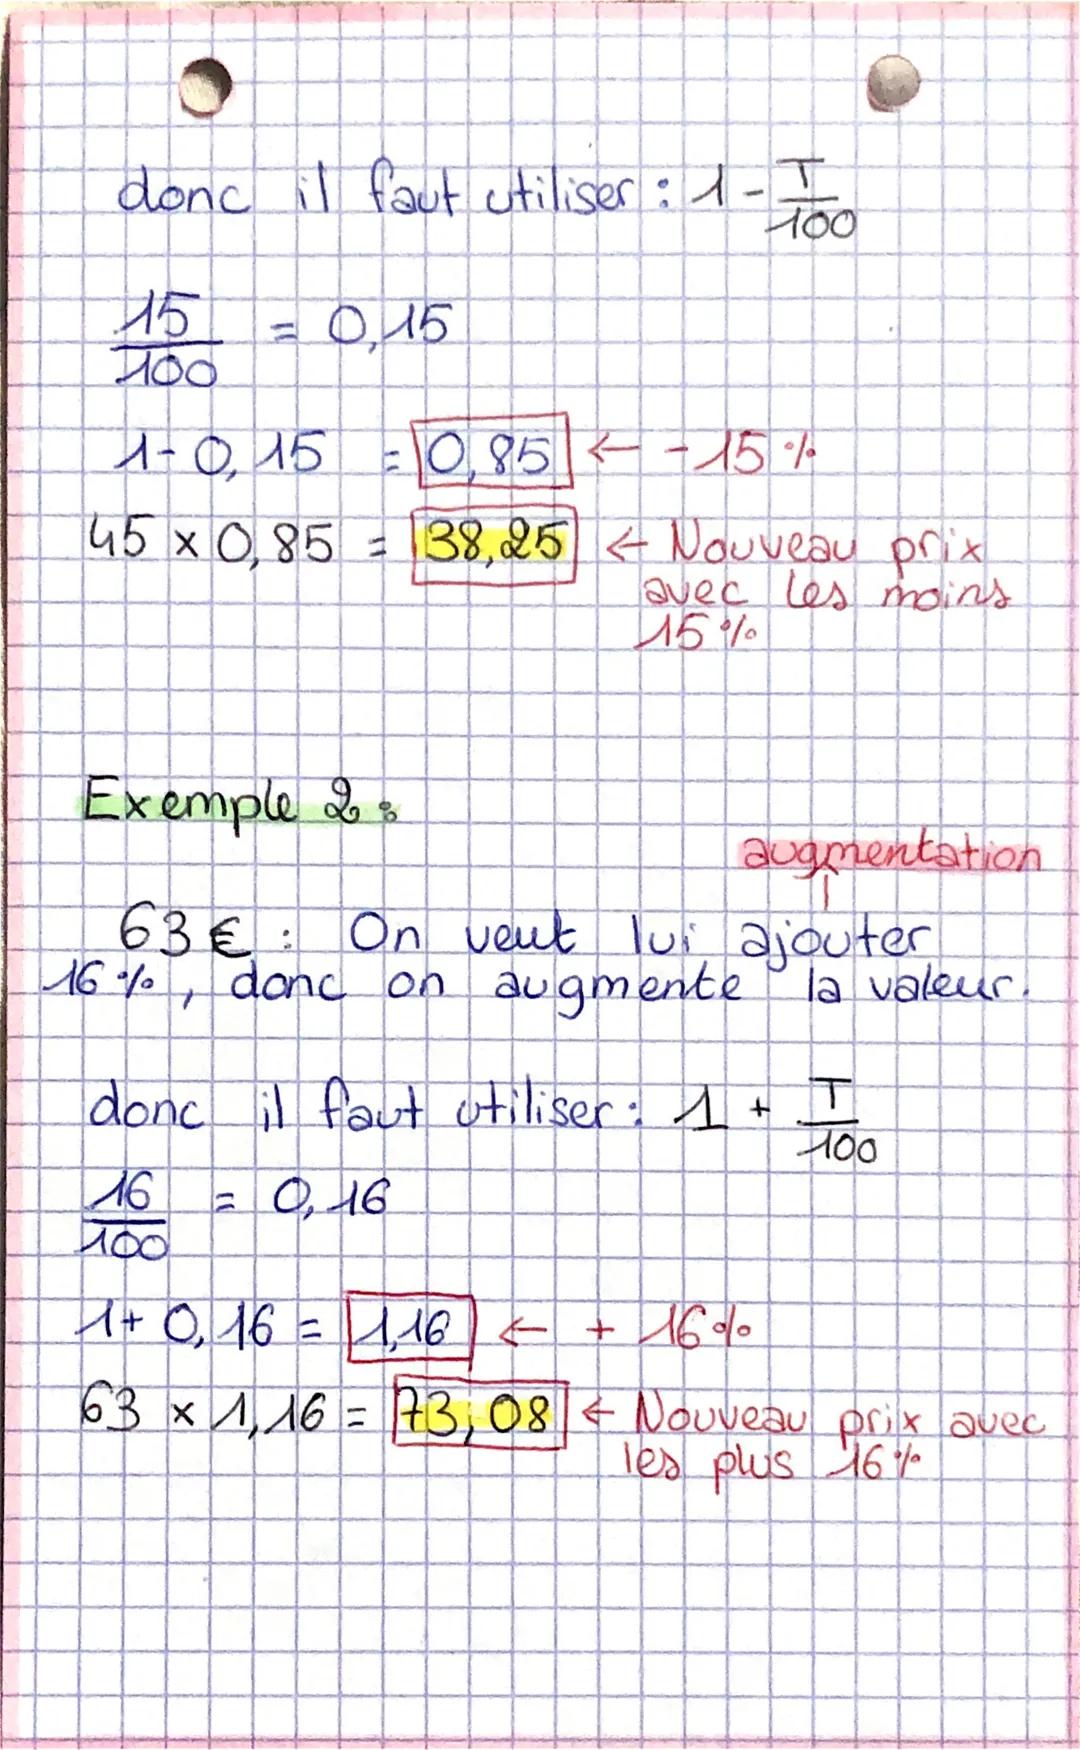 donc il faut utiliser : 1 - T/100
15/100 = 0,15
1 - 0,15 = 0,85 ← - 15 %
45 x 0,85 = 38,25 ← Nouveau prix
avec les moins
15 %
Exemple 2 :
augmentation
63 € : On veut lui ajouter
16 %, donc on augmente la valeur.
donc il faut utiliser : 1 + T/100
16/100 = 0,16
1 + 0,16 = 1,16 ← + 16 %
63 x 1,16 = 73,08 ← Nouveau prix avec
les plus 16 %